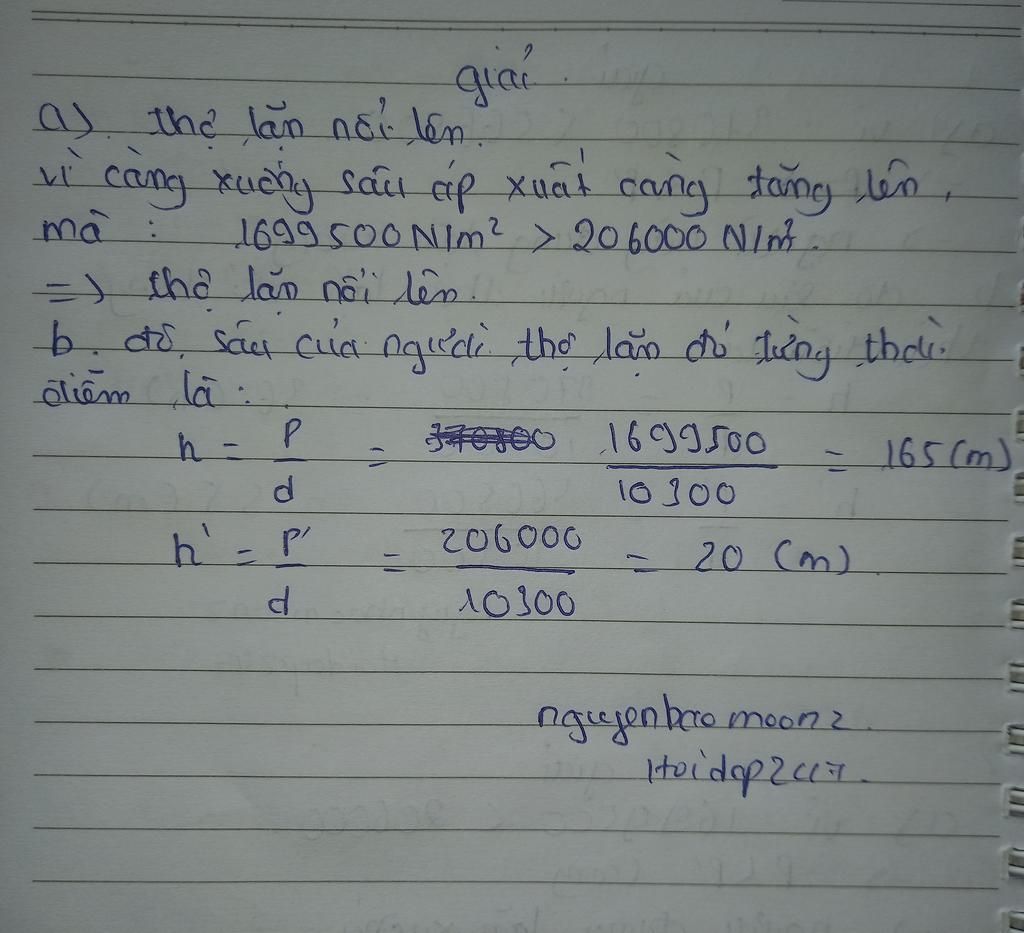 giải.
a). thợ lặn nổi lên.
vì càng xuống sâu áp xuất càng tăng lên,
mà : 1699500N/m² > 206000 N/m².
=> thợ lặn nổi lên.
b. độ sâu của người thợ lặn ở từng thời
điểm là:
h = p/d = 370800 1699500/10300 = 165(m)
h' = p'/d = 206000/10300 = 20 (m)
nguyenbaomoon2.
Hoidap247.